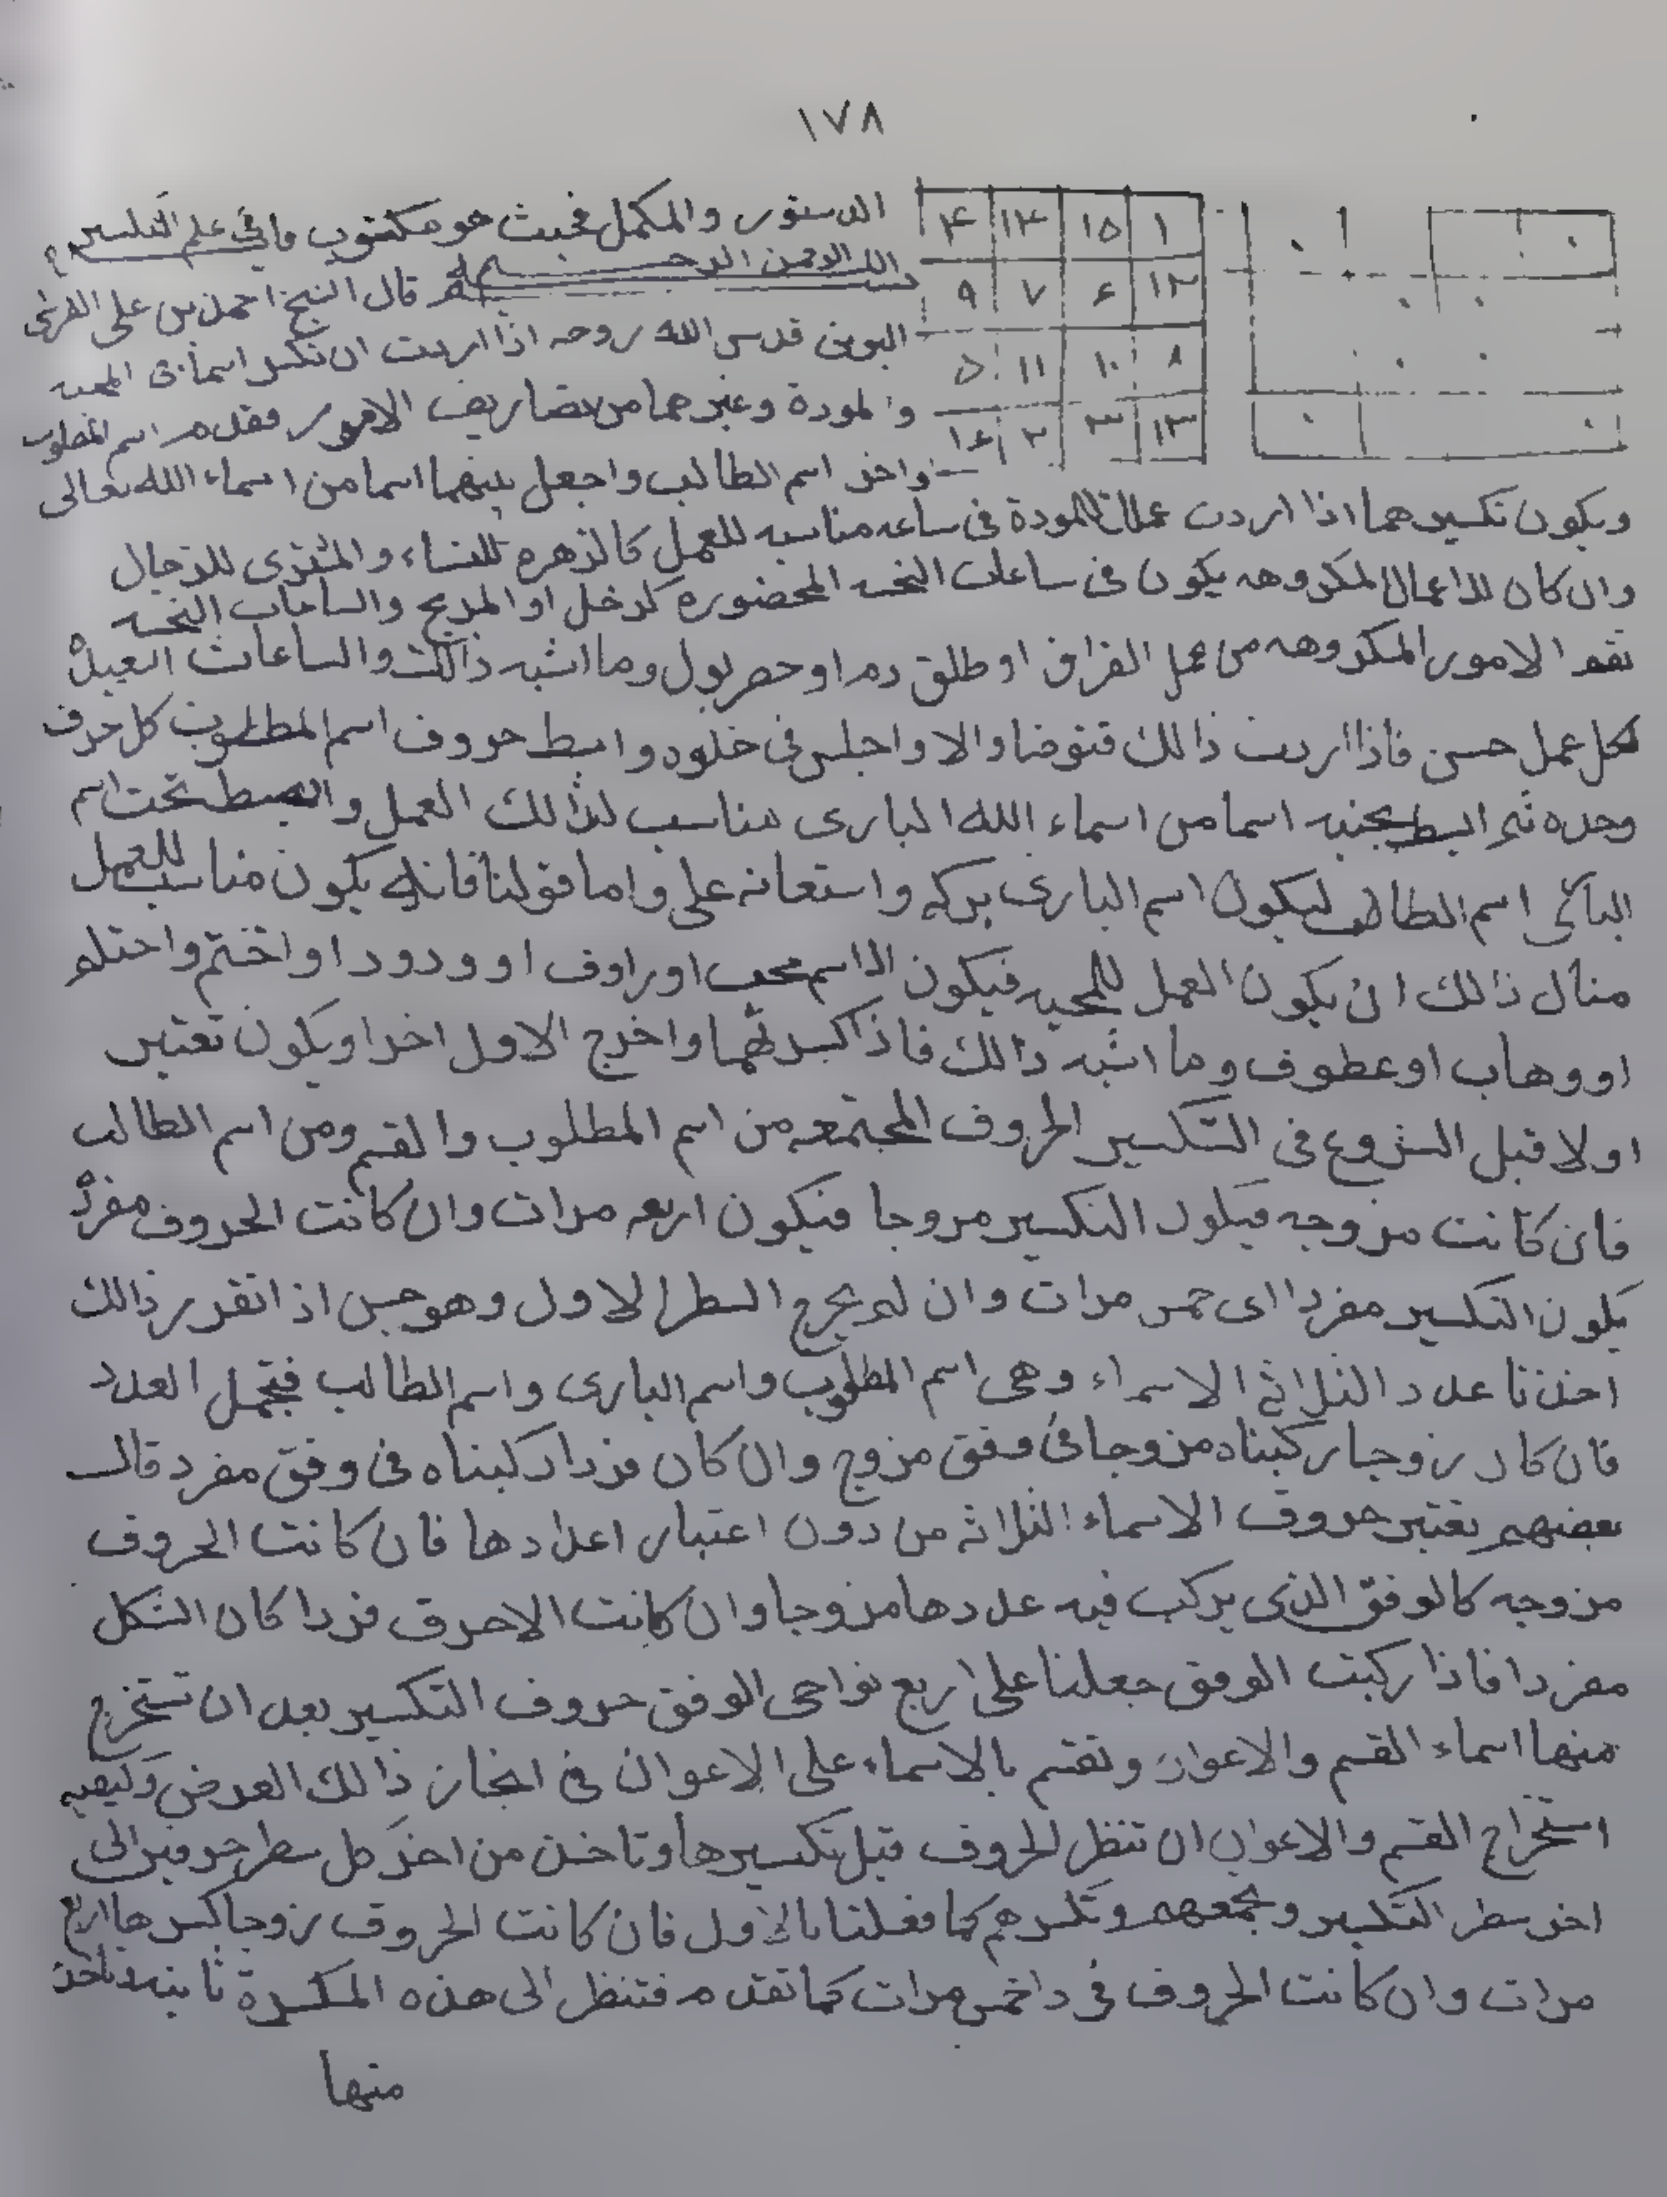 ١٧٨
٤ ١٤ ١٥ ١
٩ ٧ ٦ ١٢
٥ ١١ ١٠ ٨
١٦ ٢ ٣ ١٣
الدستور والمكمل فحيث هو مكتوب باقى علم التكسير
بسم الله الرحمن الرحيم قال الشيخ احمد بن على القرشى
البونى قدس الله روحه اذا اردت ان تكسر اسما فى المحبه
والمودة وغيرهما من تصاريف الامور فقدم اسم المطلوب
واخر اسم الطالب واجعل بينهما اسما من اسماء الله تعالى
ويكون تكسيرهما اذا اردت عملا للمودة فى ساعه مناسبه للعمل كالزهره للنساء والمشترى للرجال
وان كان للاعمال المكروهه يكون فى ساعات النحسه المحضوره كزحل او المريخ والساعات النحسه
الامور المكروهه من عمل الفراق او طلق دم او حصر بول وما اشبه ذالك والساعات السعيدة
لكل عمل حسن فاذا اردت ذالك فتوضا والا واجلس فى خلوه وابسط حروف اسم المطلوب كل حرف
وحده ثم ابسط بجنبه اسما من اسماء الله البارى مناسب لذالك العمل وابسط تحت اسم
البارى اسم الطالب ليكون اسم البارى بركه واستعانه على واما قولنا فانه يكون مناسب للعمل
مثال ذالك ان يكون العمل للمحبه فيكون الاسم محب او راوف او ودود او اختم واختلم
او وهاب او عطوف وما اشبه ذالك فاذا كسرتهما واخرج الاول اخرا ويكون تعتبر
اولا قبل الشروع فى التكسير الحروف المجتمعه من اسم المطلوب والقسم ومن اسم الطالب
فان كانت مزوجه فيكون التكسير مزوجا فيكون اربعه مرات وان كانت الحروف مفردة
يكون التكسير مفردا اى خمس مرات وان لم يخرج السطر الاول وهو حسن اذا تقرر ذالك
اخذنا عدد الثلاثة الاسماء وهى اسم المطلوب واسم البارى واسم الطالب فتجمل العدد
فان كان زوجا ركبناه مزوجا فى وفق مزوج وان كان فردا ركبناه فى وفق مفرد قال
بعضهم تعتبر حروف الاسماء الثلاثه من دون اعتبار اعدادها فان كانت الحروف
مزوجه كالوفق الذى يركب فيه عددها مزوجا وان كانت الاحرف فردا كان الشكل
مفردا فاذا ركبت الوفق جعلنا على اربع نواحى الوفق حروف التكسير بعد ان تستخرج
منها اسماء القسم والاعوان وتقسم بالاسماء على الاعوان فى انجاز ذالك الغرض وكيفيه
استخراج القسم والاعوان ان تنظر للحروف قبل تكسيرها وتاخذ من اخر كل سطر حرفين الى
اخر سطر التكسير وتجمعهم وتكسرهم كما فعلنا بالاول فان كانت الحروف زوجا كسرها اربع
مرات وان كانت الحروف فردا خمس مرات كما تقدم فتنظر الى هذه المكسرة ثانيه وتاخذ
منها